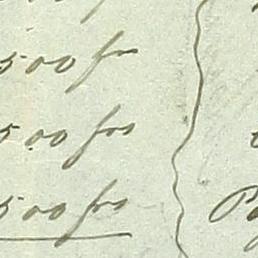 500 frs
500 frs
500 frs